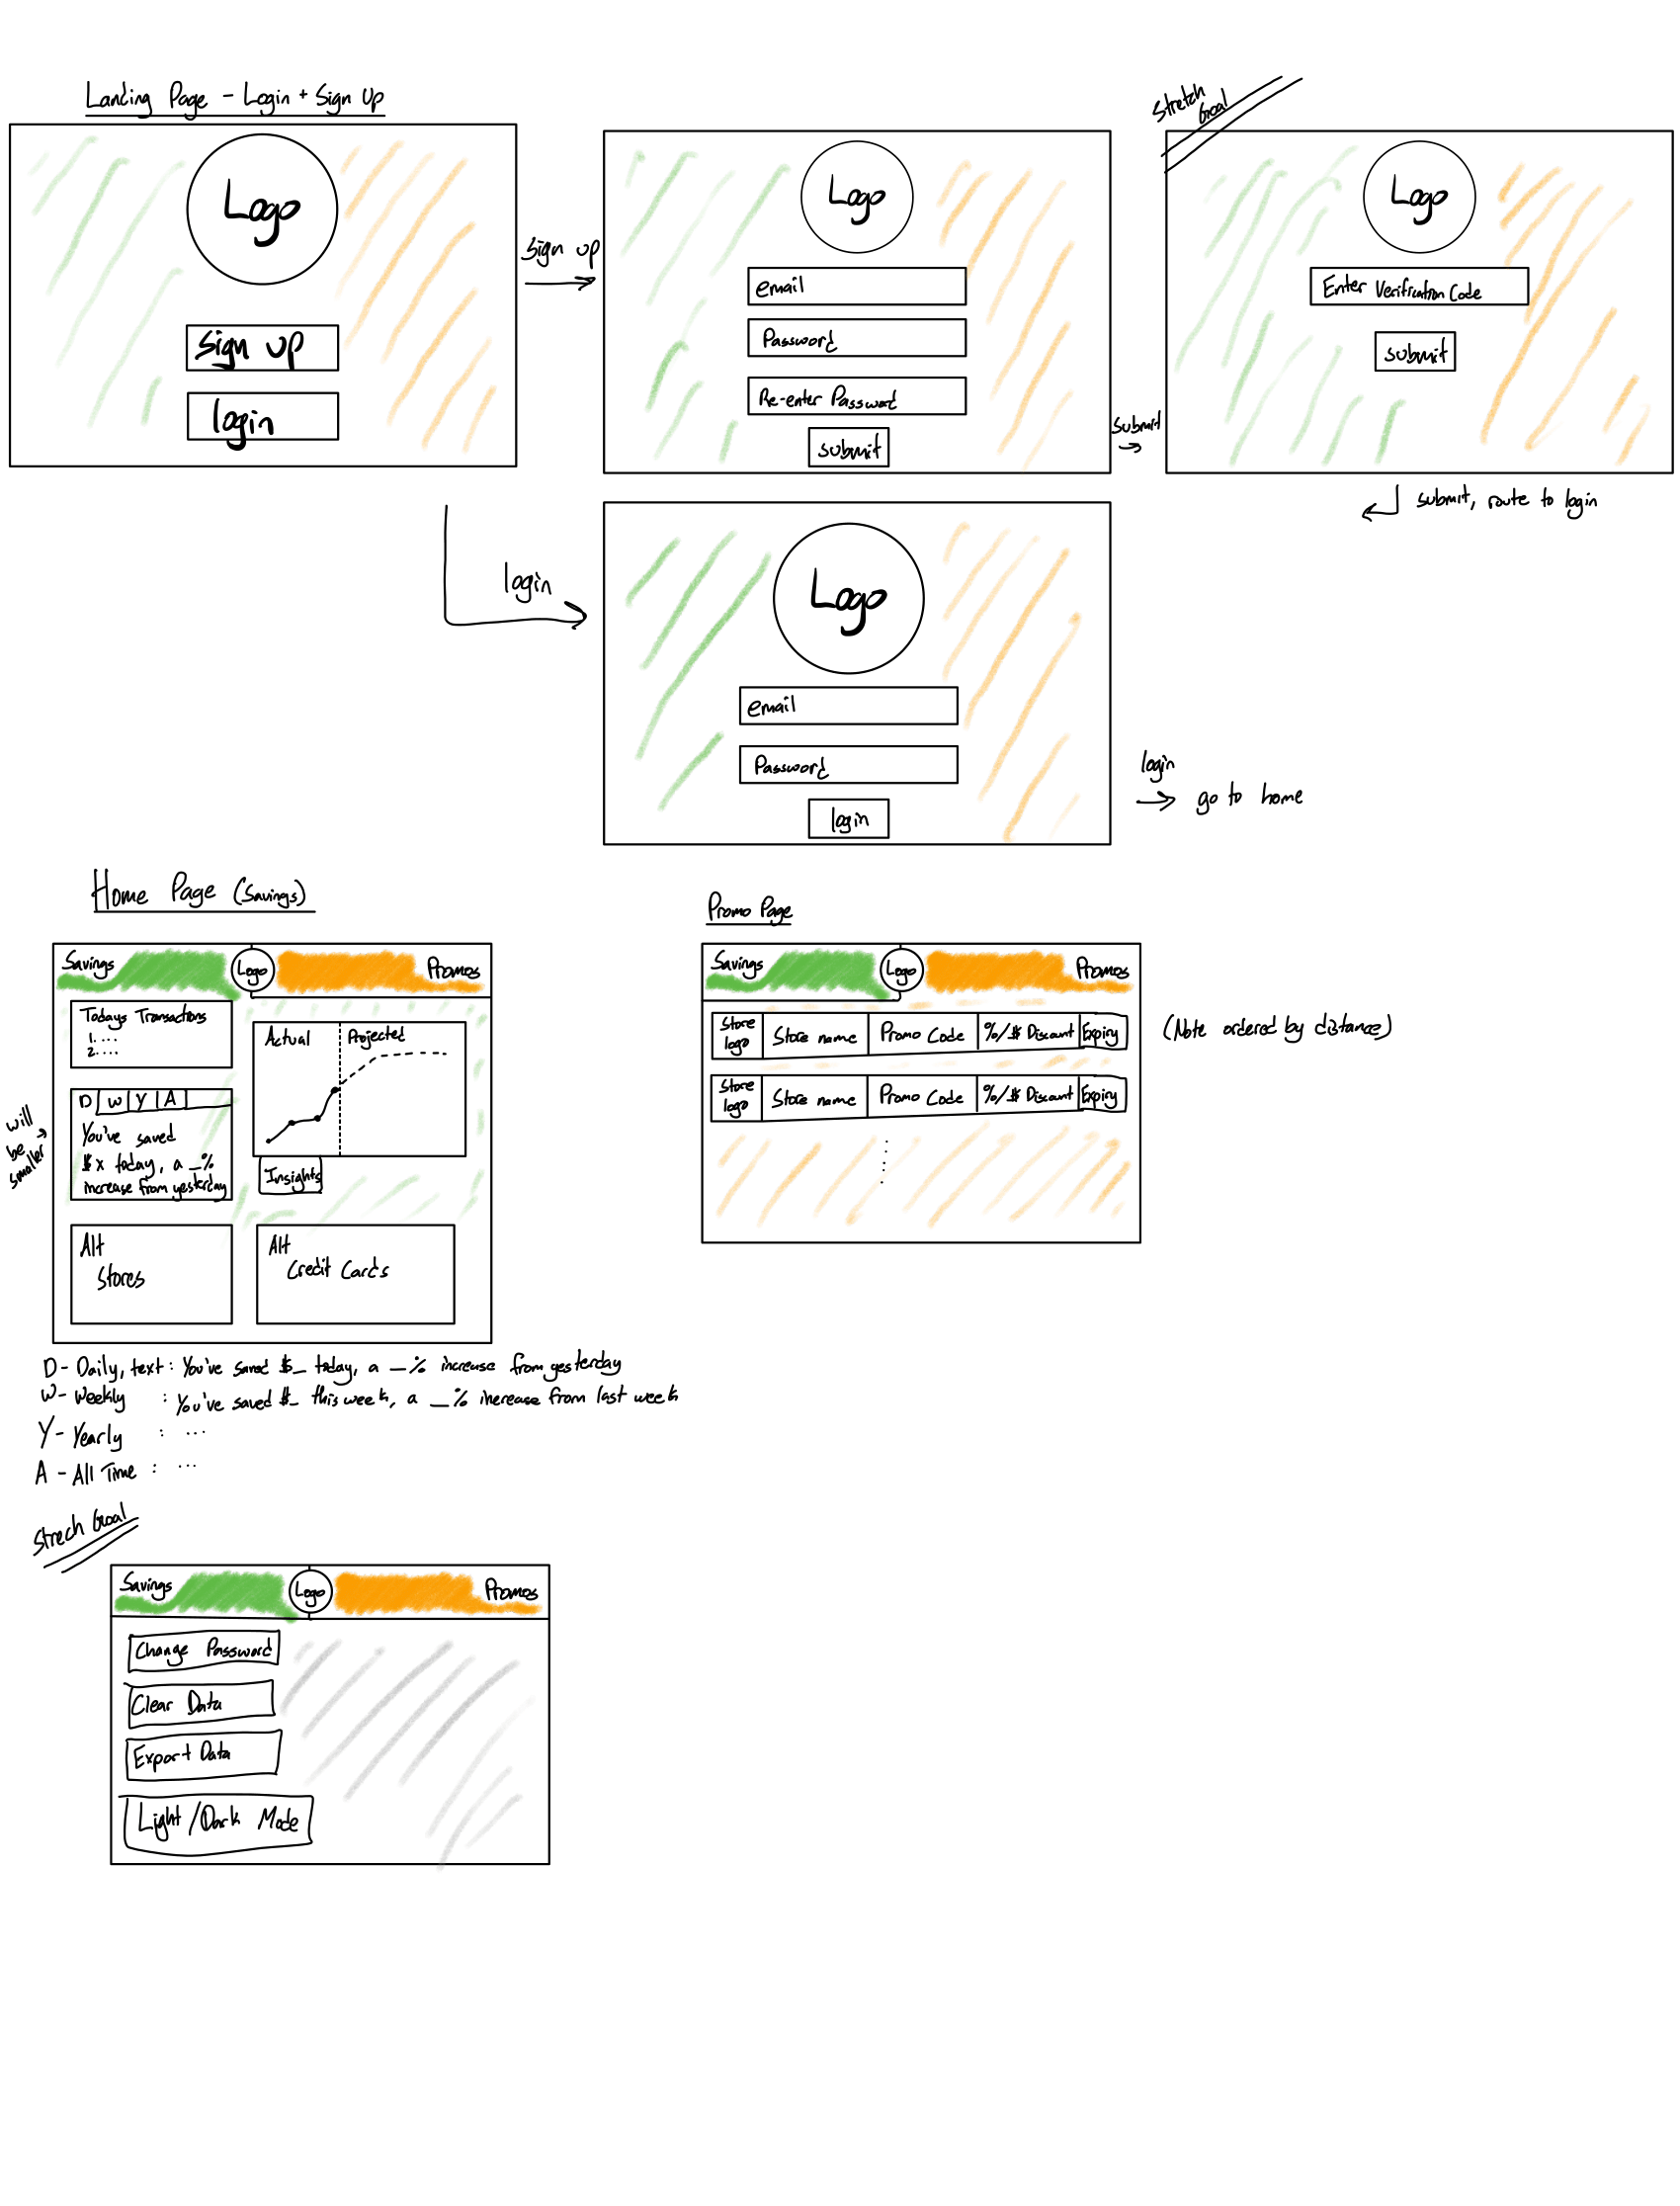 Landing Page - Login + Sign Up
Logo
Sign up
login
Sign up
Logo
email
Password
Re-enter Password
submit
submit
Stretch
Goal
Logo
Enter Verification Code
submit
submit, route to login
login
Logo
email
Password
login
login
go to home
Home Page (Savings)
Savings
Logo
Promos
Todays Transactions
1. ...
2. ...
Actual
Projected
will
be
smaller
D W Y A
You've saved
$x today, a _%
increase from yesterday
Insights
Alt
Stores
Alt
Credit Cards
D - Daily, text : You've saved $_ today, a _% increase from yesterday
W - Weekly : You've saved $_ this week, a _% increase from last week
Y - Yearly : ...
A - All Time : ...
Promo Page
Savings
Logo
Promos
Store
logo
Store name
Promo Code
%/$ Discount
Expiry
(Note ordered by distance)
Store
logo
Store name
Promo Code
%/$ Discount
Expiry
Strech Goal
Savings
Logo
Promos
Change Password
Clear Data
Export Data
Light/Dark Mode